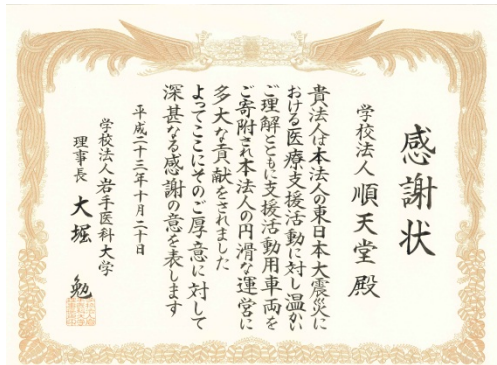 感謝状
学校法人 順天堂 殿
貴法人は本法人の東日本大震災に
おける医療支援活動に対し温かい
ご理解とともに支援活動用車両を
ご寄附され本法人の円滑な運営に
多大な貢献をされました
よってここにそのご厚意に対して
深甚なる感謝の意を表します
平成二十三年十月二十日
学校法人岩手医科大学
理事長 大堀 勉